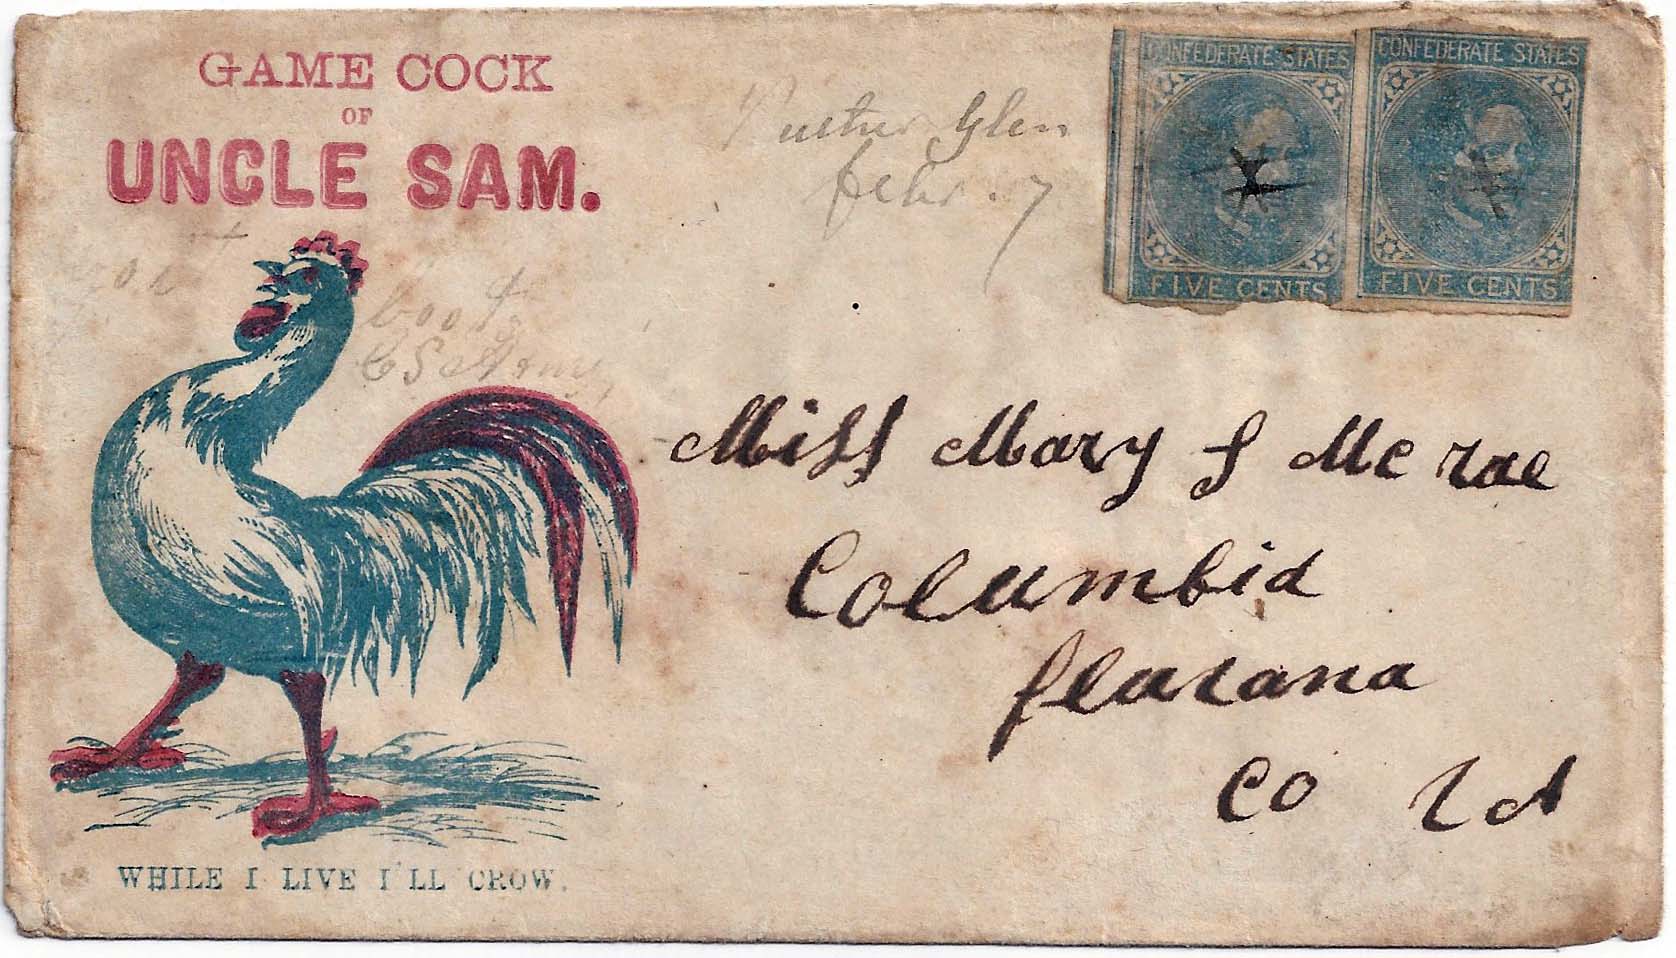 GAME COCK
OF
UNCLE SAM.
Glen
febr. 7
CONFEDERATE STATES
FIVE CENTS
CONFEDERATE STATES
FIVE CENTS
CS Army
Miss Mary J Mc rae
Columbia
fluvana
Co
WHILE I LIVE I'LL CROW.